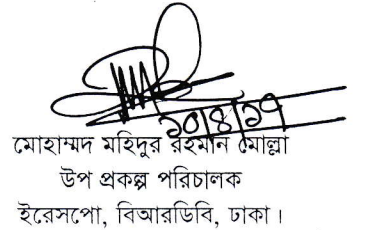 ১০/৪/১৭
মোহাম্মদ মহিদুর রহমান মোল্লা
উপ প্রকল্প পরিচালক
ইরেসপো, বিআরডিবি, ঢাকা।